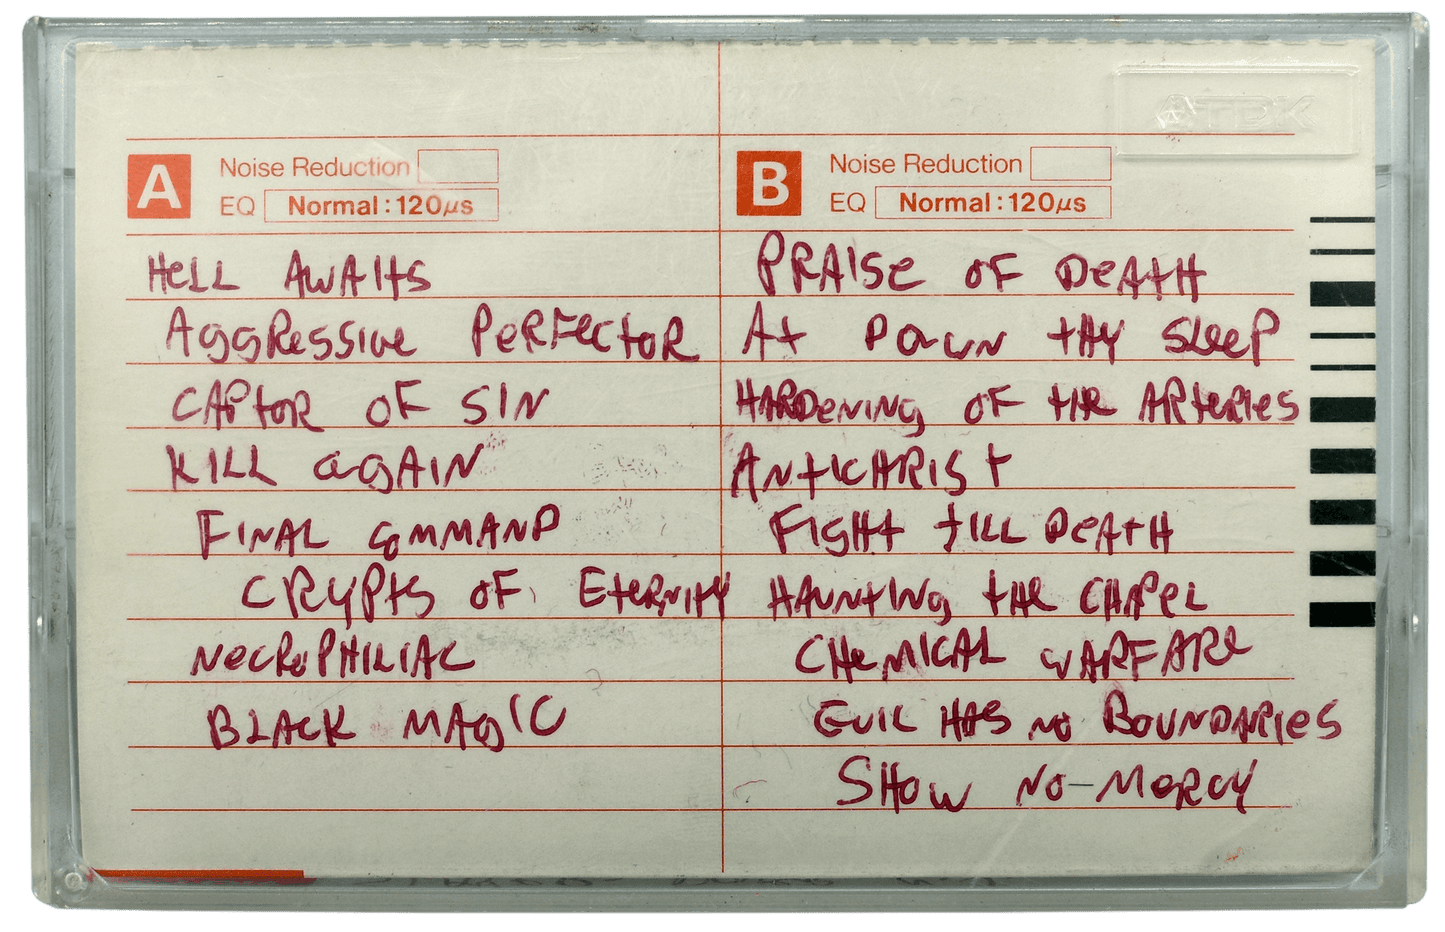 TDK
A
Noise Reduction
EQ Normal:120μs
HELL AWAITS
AGGRESSIVE PERFECTOR
CAPTOR OF SIN
KILL AGAIN
FINAL COMMAND
CRYPTS OF ETERNITY
NECROPHILIAC
BLACK MAGIC
B
Noise Reduction
EQ Normal:120μs
PRAISE OF DEATH
AT DAWN THY SLEEP
HARDENING OF THE ARTERIES
ANTICHRIST
FIGHT TILL DEATH
HAUNTING THE CHAPEL
CHEMICAL WARFARE
EVIL HAS NO BOUNDARIES
SHOW NO-MERCY